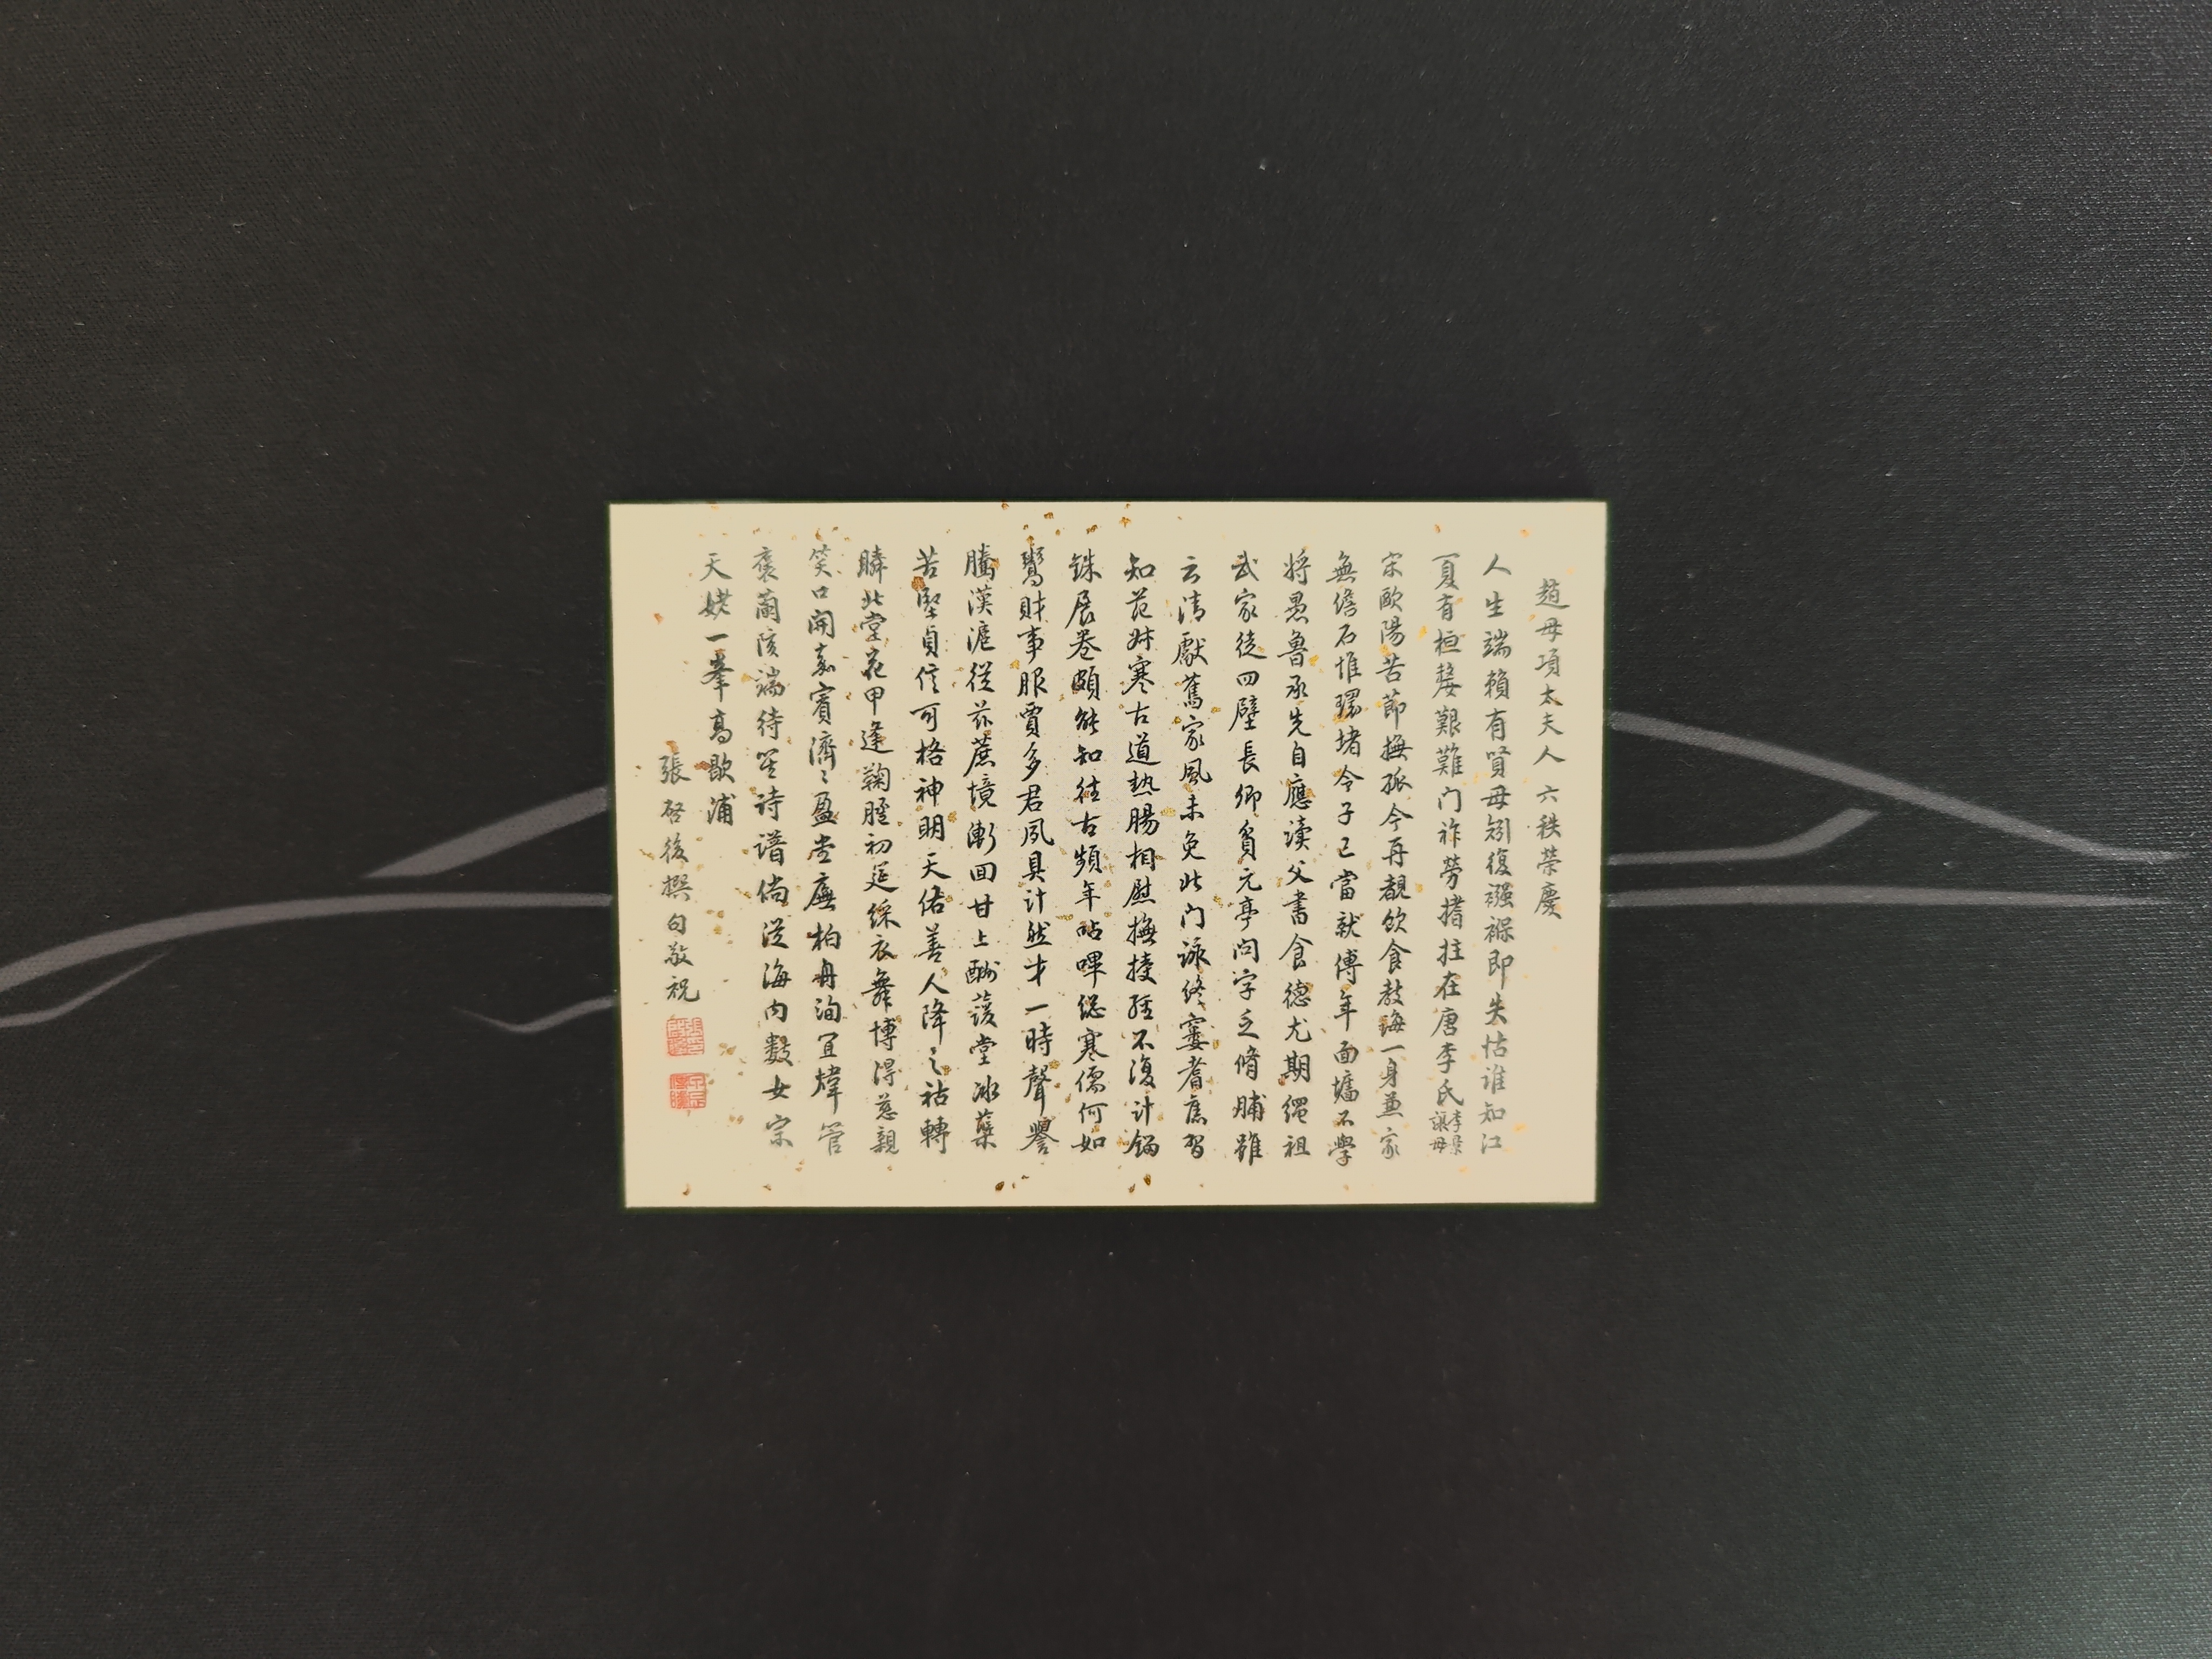 趙母項太夫人六秩榮慶
人生端賴有賢母矧復襁褓即失怙誰知江
夏有桓嫠艱難门祚勞搘拄在唐李氏李景讓母
宋歐陽苦節撫孤今再覩飲食教誨一身兼家
無儋石惟環堵令子已當就傅年面墻不學
將愚魯承先自應讀父書食德尤期繩祖
武家徒四壁長卿貧元亭問字乏脩脯雖
云清獻舊家風未免北门詠終窶耆舊習
知范叔寒古道熱腸相慰撫授經不復計錙
銖展卷頗能知往古頻年呫嗶總寒儒何如
鬻財事服賈多君夙具計然才一時聲譽
騰漢滬從茲蔗境漸回甘上酬護堂冰蘗
苦堅貞信可格神明天佑善人降之祜轉
瞬北堂花甲逢鞠𦞦初延綵衣舞博得慈親
笑口開嘉賓濟〻盈堂廡柏舟洵宜煒管
褒蘭陔端待笙詩譜倘從海内數女宗
天姥一峯高歇浦
張啓後撰句敬祝